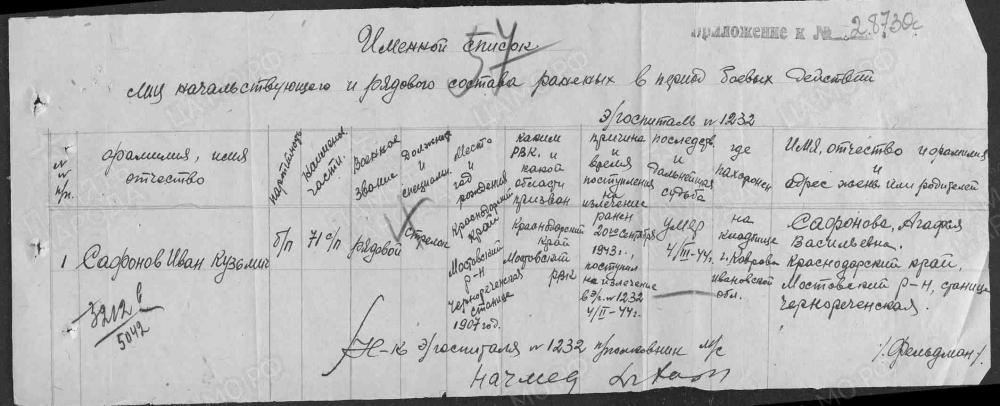 Приложение к № 28730с
57
Именной список
лиц начальствующего и рядового состава раненых в период боевых действий
э/госпиталь №1232
№№ п/п.
фамилия, имя отчество
партийность
наименов. части.
Военное звание
Должность и специальн.
Место и год рождения
каким РВК, и какой области призван
причина и время поступления на излечение
последств. и дальнейшая судьба
где похоронен
Имя, отчество и фамилия и адрес жены или родителей
1
Сафонов Иван Кузьмич
б/п
71 с/п
рядовой
стрелок
Краснодарский край Мостовский р-н Чернореченская станица 1907 год.
Краснодарский край Мостовский РВК
ранен 20го сентября 1943 г., поступил на излечение в э/г. №1232 4/II-44г.
умер 4/III-44г.
на кладбище г. Коврова Ивановской обл.
Сафонова, Агафия Васильевна.
Краснодарский край,
Мостовский р-н, станица
Чернореченская.
3212 в
5042
Н-к э/госпиталя №1232 п/полковник м/с
/Фельдман/.
Начмед